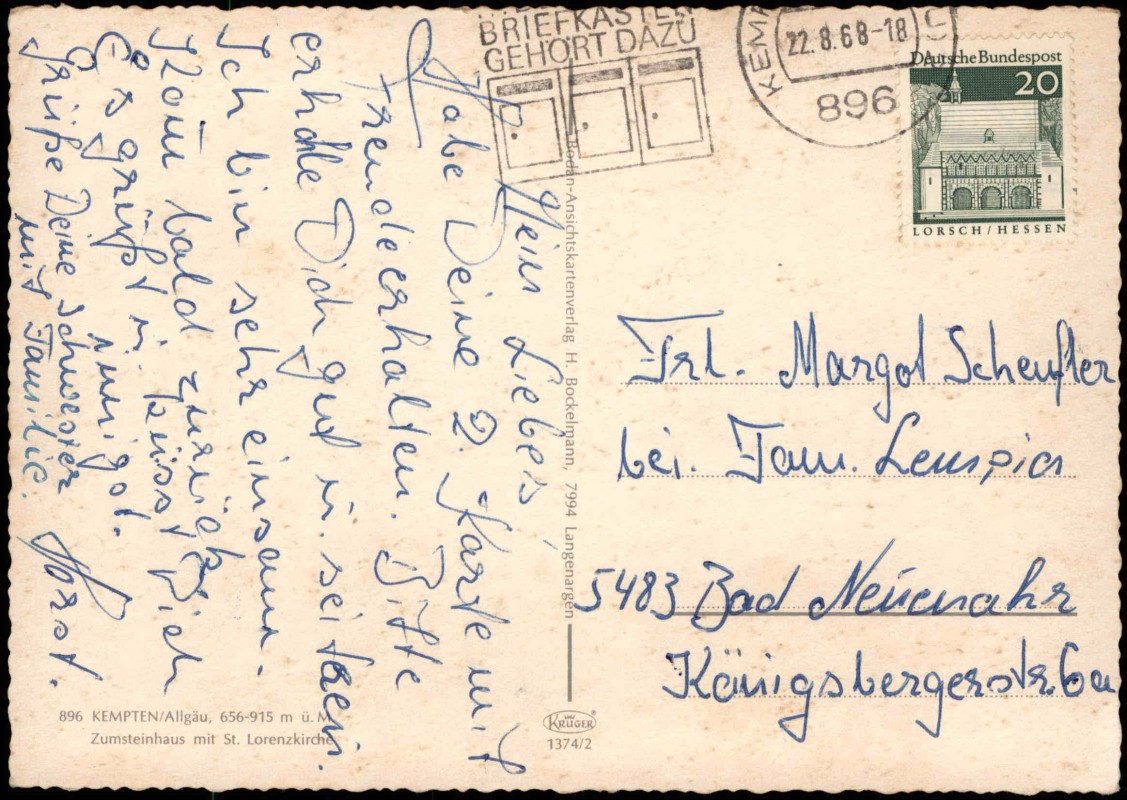 BRIEFKASTEN
GEHÖRT DAZU
22.8.68-18
896
Deutsche Bundespost
20
LORSCH/HESSEN
Mein Liebes,
Habe Deine 2. Karte mit
Freude erhalten. Bitte
erhole Dich gut u. sei treu.
Ich bin sehr einsam.
Komm bald zurück
Es grüßt u. küsst Dich
innigst.
Horst.
Grüße Deine Schwester
mit Familie.
Bodan-Ansichtskartenverlag H. Bockelmann, 7994 Langenargen
Frl. Margot Scheufler
bei. Fam.
5483 Bad Neuenahr
Königsbergerstr. 6a
896 KEMPTEN/Allgäu, 656-915 m ü. M
Zumsteinhaus mit St. Lorenzkirche
KRÜGER
1374/2